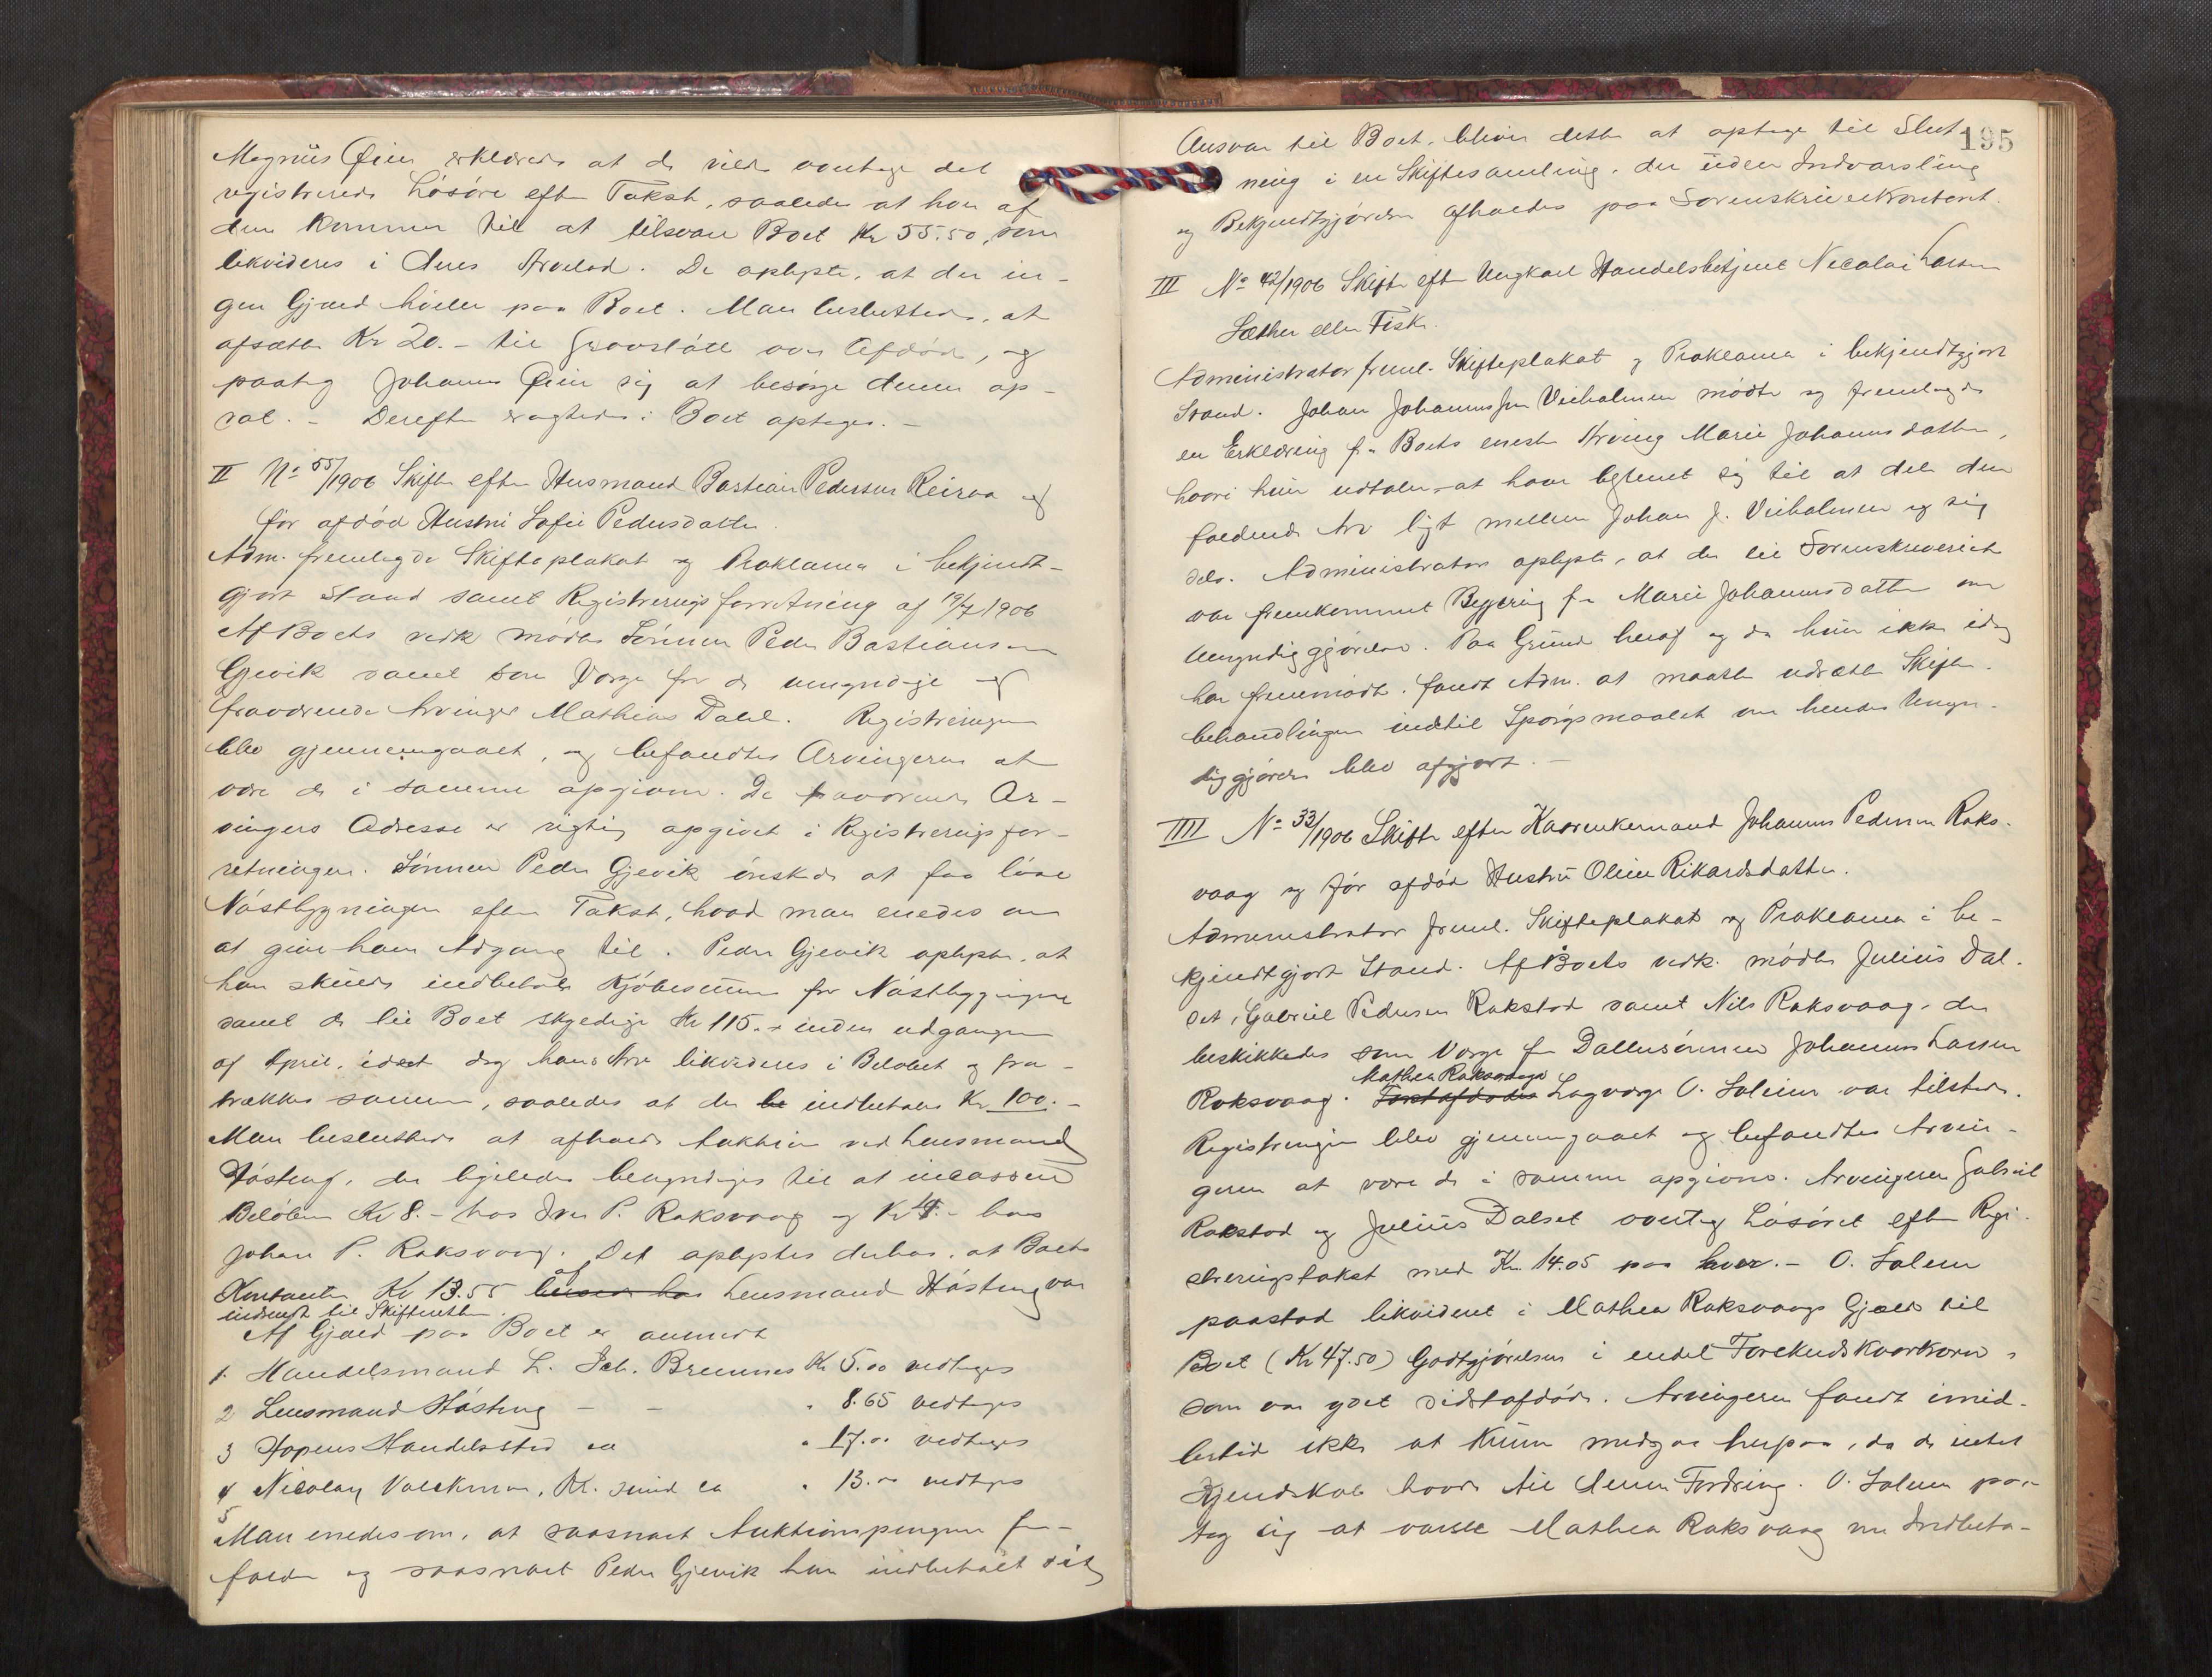 Magnus Øien erklærede at de vilde overtage det
registrerede Løsøre efter Takst, saaledes at han af
dem kommer til at tilsvare Boet Kr 55.50, som
likvideres i deres Arvelod. De oplyste, at der in-
gen Gjæld hviler paa Boet. Man besluttede, at
afsætte Kr 20.- til Gravstøtte over Afdøde, og
paatog Johannes Øien sig at besørge denne op-
sat. - Derefter Boet optages. -
II No 55/1906 Skifte efter Husmand Bastian Pedersen Reiraa og
før afdød Hustru Sofie Pedersdatter.
Adm. fremlagde Skifteplakat og Proklama i bekjendt-
gjort Stand samt Registreringsforretning af 19/7 1906
Af Boets vedk mødte Sønnen Peder Bastiansen
Gjevik samt som Værge for de umyndige og
fraværende Arvinger Mathias Dahl. Registreringen
blev gjennemgaaet, og befandtes Arvingerne at
være de i samme opgivne. De fraværende Ar-
vingers Adresse er rigtig opgivet i Registreringsfor-
retningen. Sønnen Peder Gjevik ønskede at faa løse
Nøstbygningen efter Takst, hvad man enedes om
at give ham Adgang til. Peder Gjevik oplyste, at
han skulde indbetale Kjøbesummen for Nøstbygningen
samt de til Boet skyldige Kr 115.- inden udgangen
af April, idet dog hans Arv likvideres i Beløbet og fra-
trækkes samme, saaledes at der be indbetales Kr 100.-
Man besluttede at afholde Auktion ved Lensmand
Høsteng, der ligeledes bemyndiges til at incassere
Beløbene Kr 8.- hos Iver P. Raksvaag og Kr 4.- hos
Johan P. Raksvaag. Det oplystes derhos, at Boets
Kontanter Kr 13.55 af Lensmand Høsteng var
indsendt til Skifteretten.
Af Gjæld paa Boet er anmeldt
1. Handelsmand L. Sch. Brunnes Kr 5.00 vedtages
2 Lensmand Høsteng - - " 8.65 vedtages
3 Hopens Handelssted ca " 17.00 vedtages
4 Nicolay Volckmar, Kr.sund ca " 13.00 vedtages
5
Man enedes om, at saasnart Auktionspengene for-
falder og saasnart Peder Gjevik har indbetalt sit
195
Ansvar til Boet, bliver dette at optage til Slut-
ning i en Skiftesamling, der uden Indvarsling
og Bekjendtgjørelse afholdes paa Sorenskriverkontoret.
III No 42/1906 Skifte efter Ungkarl Handelsbetjent Nicolai Larsen
Sæther eller Fiske.
Administrator freml. Skifteplakat og Proklama i bekjendtgjort
Stand. Johan Johannessen Vieholmen mødte og fremlagde
en Erklæring fra Boets eneste Arving Marie Johannesdatter,
hvori hun udtaler at have bestemt sig til at dele den
faldende Arv ligt mellem Johan J. Vieholmen og sig
selv. Administrator oplyste, at der til Sorenskriveriet
var fremkommet Begjæring fra Marie Johannesdatter om
Umyndiggjørelse. Paa Grund heraf og da hun ikke idag
har fremmødt, fandt Adm. at maatte udsætte Skifte-
behandlingen indtil Spørgsmaalet om hendes Umyn-
diggjørelse blev afgjort. -
IIII No 33/1906 Skifte efter Kaarenkemand Johannes Pedersen Raks-
vaag og før afdød Hustru Oline Rikardsdatter.
Administrator freml. Skifteplakat og Proklama i be-
kjendtgjort Stand. Af Boets vedk. mødte Julius Dal-
set, Gabriel Pedersen Rakstad samt Nils Raksvaag, der
beskikkedes som Værge for Dattersønnen Johannes Larsen
Raksvaag. Mathea Raksvaags Lagværge O. Solem var tilstede.
Registreringen blev gjennemgaaet og befandtes Arvin-
gerne at være de i samme opgivne. Arvingerne Gabriel
Rakstad og Julius Dalset overtog Løsøret efter Regi-
streringstakst med Kr. 14.05 paa hver. - O. Solem
paastod likvideret i Mathea Raksvaags Gjæld til
Boet (Kr 47.50) Godtgjørelsen i endel Kaarkorn,
som var ydet sidstafdøde. Arvingerne fandt imid-
lertid ikke at kunne medgaa herpaa, da de intet
Kjendskab havde til denne Fordring. O. Solem paa-
tog sig at varsle Mathea Raksvaag om Indbeta-